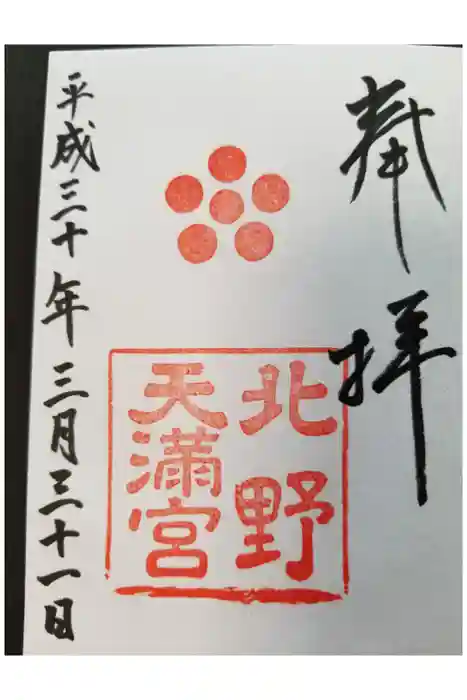 奉拝
北野
天満宮
平成三十年三月三十一日